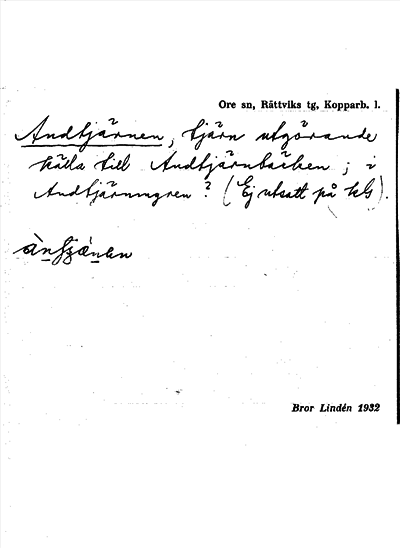 Ore sn, Rättviks tg, Kopparb. l.
Andtjärnen, tjärn utgörande
källa till Andtjärnbäcken ; i
Andtjärnmyren ? (Ej utsatt på kbl).
Bror Lindén 1932